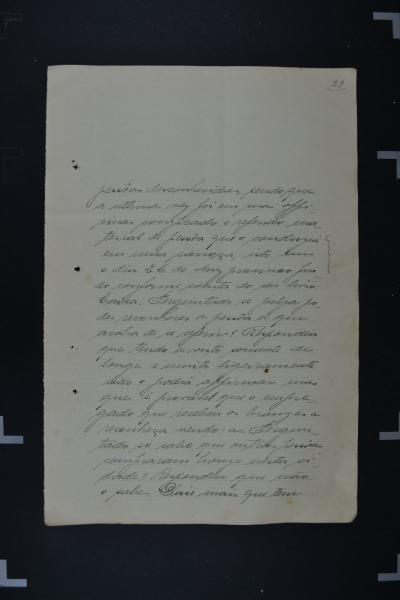 29
pessôas desconhecidas, sendo que
a ultima vez foi em sua offi-
cina comprado o referido ma-
terial de pessôa que o conduzia
em uma carroça, isto em
o dia 26 do mez proximo fin-
do conforme consta do seu livro
Caixa. Perguntado se julga po-
der reconhecer a pessôa a que
acaba de se referir? Respondeu
que tendo a visto somente de
longe e muito ligeiramente
não o podia affirmar mas
que é provavel que o empre-
gado que recebeu os bronzes a
reconheça vendo-a. Pergun-
tado, se sabe que outras pessôas
compraram bronze nesta ci-
dade? Respondeu que não
o sabe. Disse mais que tem